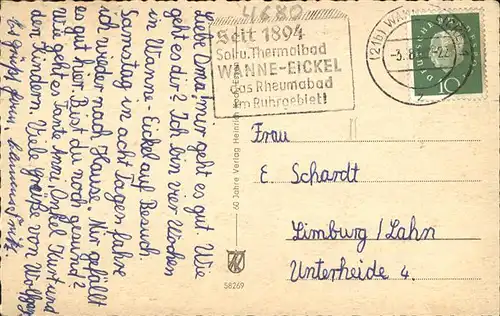 4680
Seit 1894
Sol-u. Thermalbad
WANNE-EICKEL
das Rheumabad
im Ruhrgebiet!
(21b) WANNE-
-3.8.
DEUTSCHE
10
Liebe Oma! mir geht es gut. Wie
geht es dir? Ich bin vier Wochen
in Wanne-Eickel auf Besuch.
Samstag in acht Tagen fahre
ich wieder nach Hause. Mir gefällt
es gut hier. Bist du noch gesund?
Wie geht es Tante Anni, Onkel Kurt und
den Kindern. Viele Grüße von Wolfgang
Es grüßt
60 Jahre Verlag Heinrich
58269
Frau
E Schardt
Limburg/Lahn
Unterheide 4.